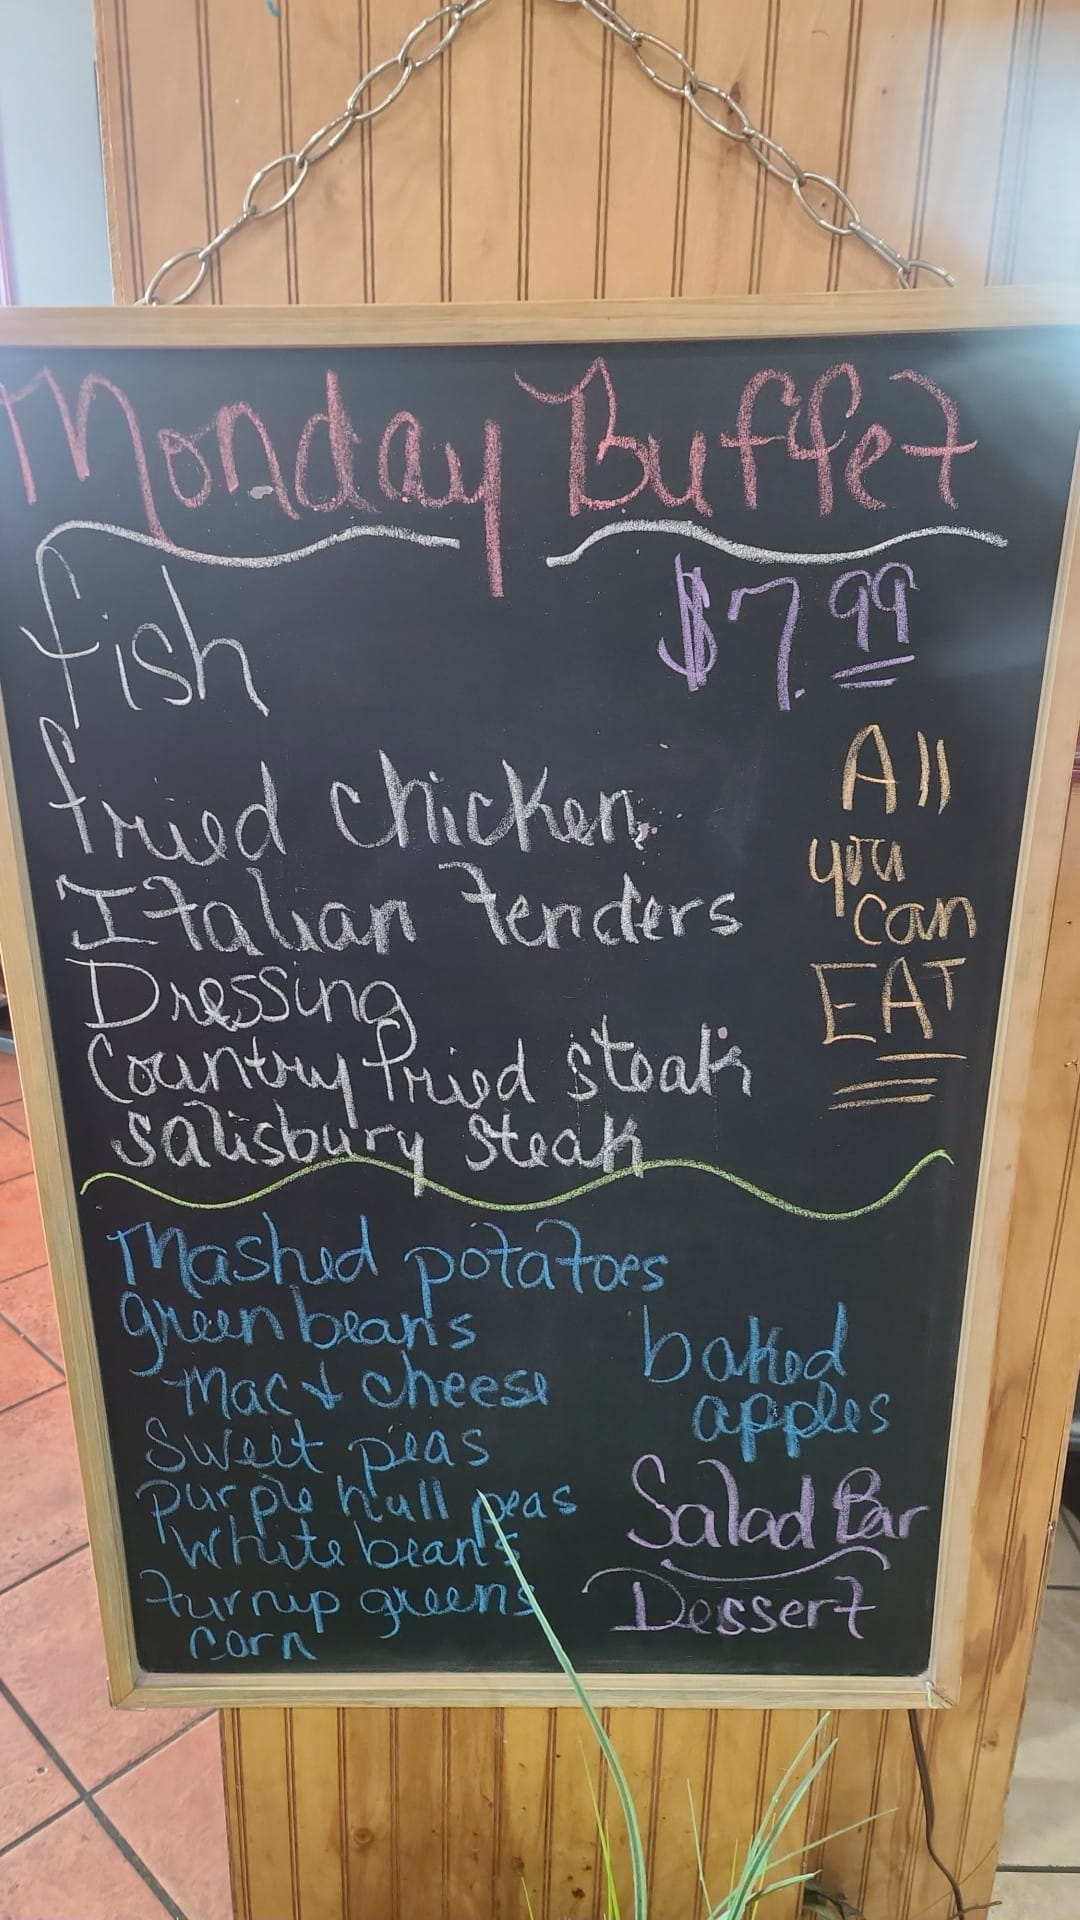 Monday Buffet
fish
$7.99
fried chicken
Italian tenders
Dressing
Country fried steak
Salisbury steak
All
you
can
EAT
Mashed potatoes
green beans
Mac & cheese
Sweet peas
purple hull peas
White beans
turnip greens
corn
baked
apples
Salad Bar
Dessert